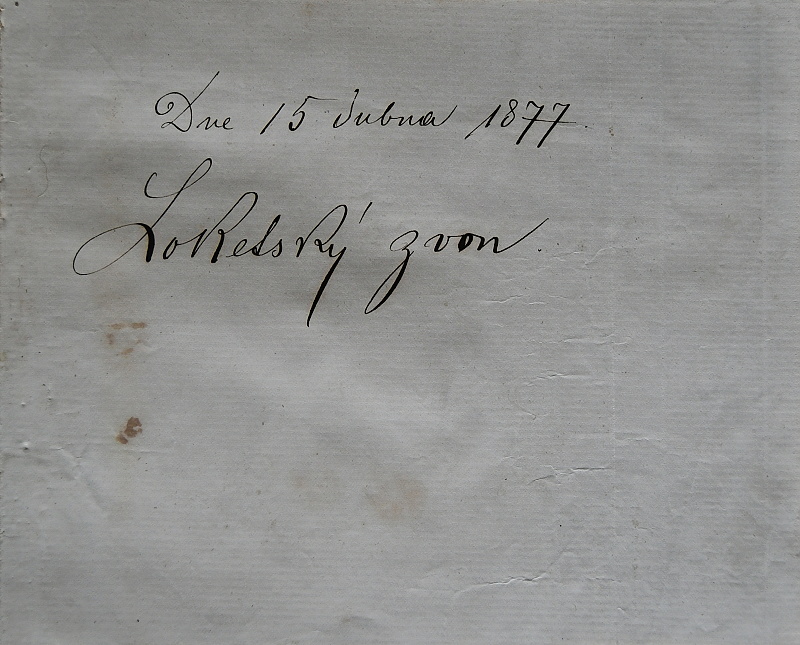 Dne 15 dubna 1877.
Loketský zvon.